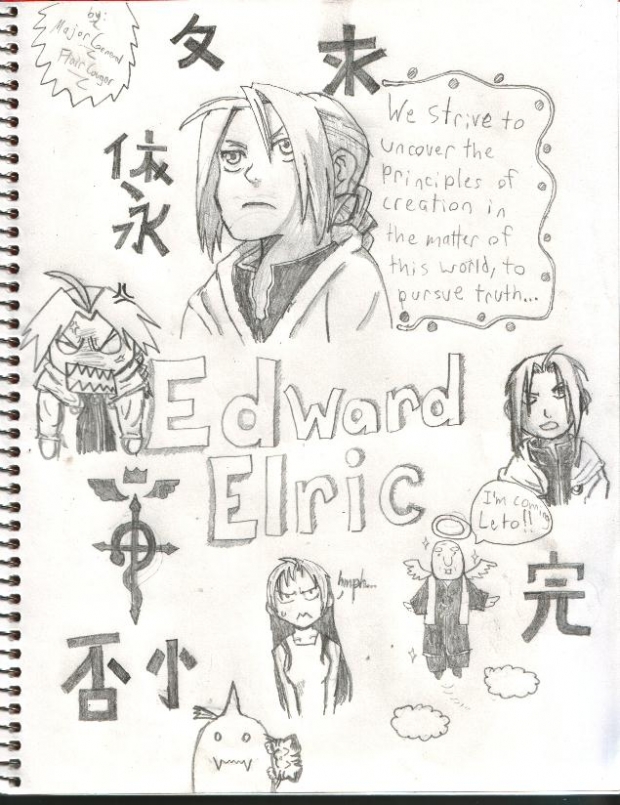 by:
Major
依
永
We strive to
uncover the
principles of
creation in
the matter of
this world, to
pursue truth...
Edward
Elric
I'm coming
Leto!!
hmph...
完
否小